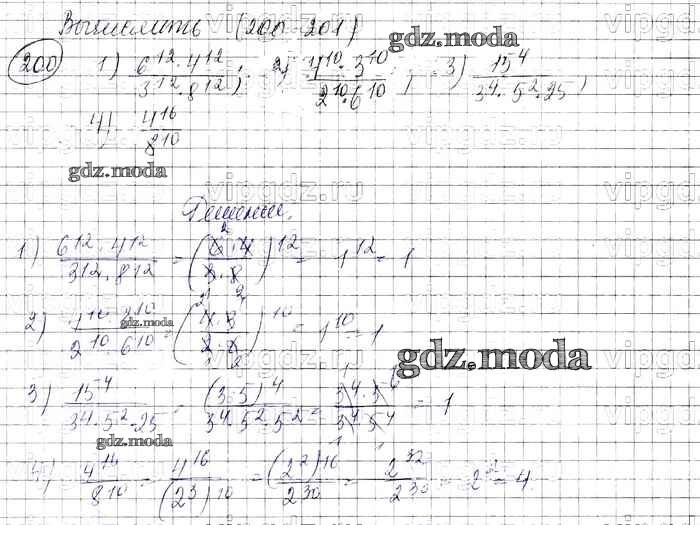 Вычислить (200-201)
gdz.moda
200 1) 6^12·4^12 / 3^12·8^12; 2) 4^10·3^10 / 2^10·6^10; 3) 15^4 / 3^4·5^2·25;
4) 4^16 / 8^10
gdz.moda
vipgdz.ru
Решение.
1) 6^12·4^12 / 3^12·8^12 = (6·4 / 3·8)^12 = 1^12 = 1
2) 4^10·3^10 / 2^10·6^10 = (4·3 / 2·6)^10 = 1^10 = 1
gdz.moda
gdz.moda
3) 15^4 / 3^4·5^2·25 = (3·5)^4 / 3^4·5^2·5^2 = 3^4·5^4 / 3^4·5^4 = 1
gdz.moda
4) 4^16 / 8^10 = 4^16 / (2^3)^10 = (2^2)^16 / 2^30 = 2^32 / 2^30 = 2^2 = 4